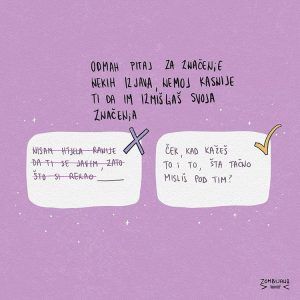 ODMAH PITAJ ZA ZNAČENJE
NEKIH IZJAVA, NEMOJ KASNIJE
TI DA IM IZMIŠLJAŠ SVOJA
ZNAČENJA
NISAM HTJELA RANIJE
DA TI SE JAVIM, ZATO
ŠTO SI REKAO ______
ČEK, KAD KAŽEŠ
TO I TO, ŠTA TAČNO
MISLIŠ POD TIM?